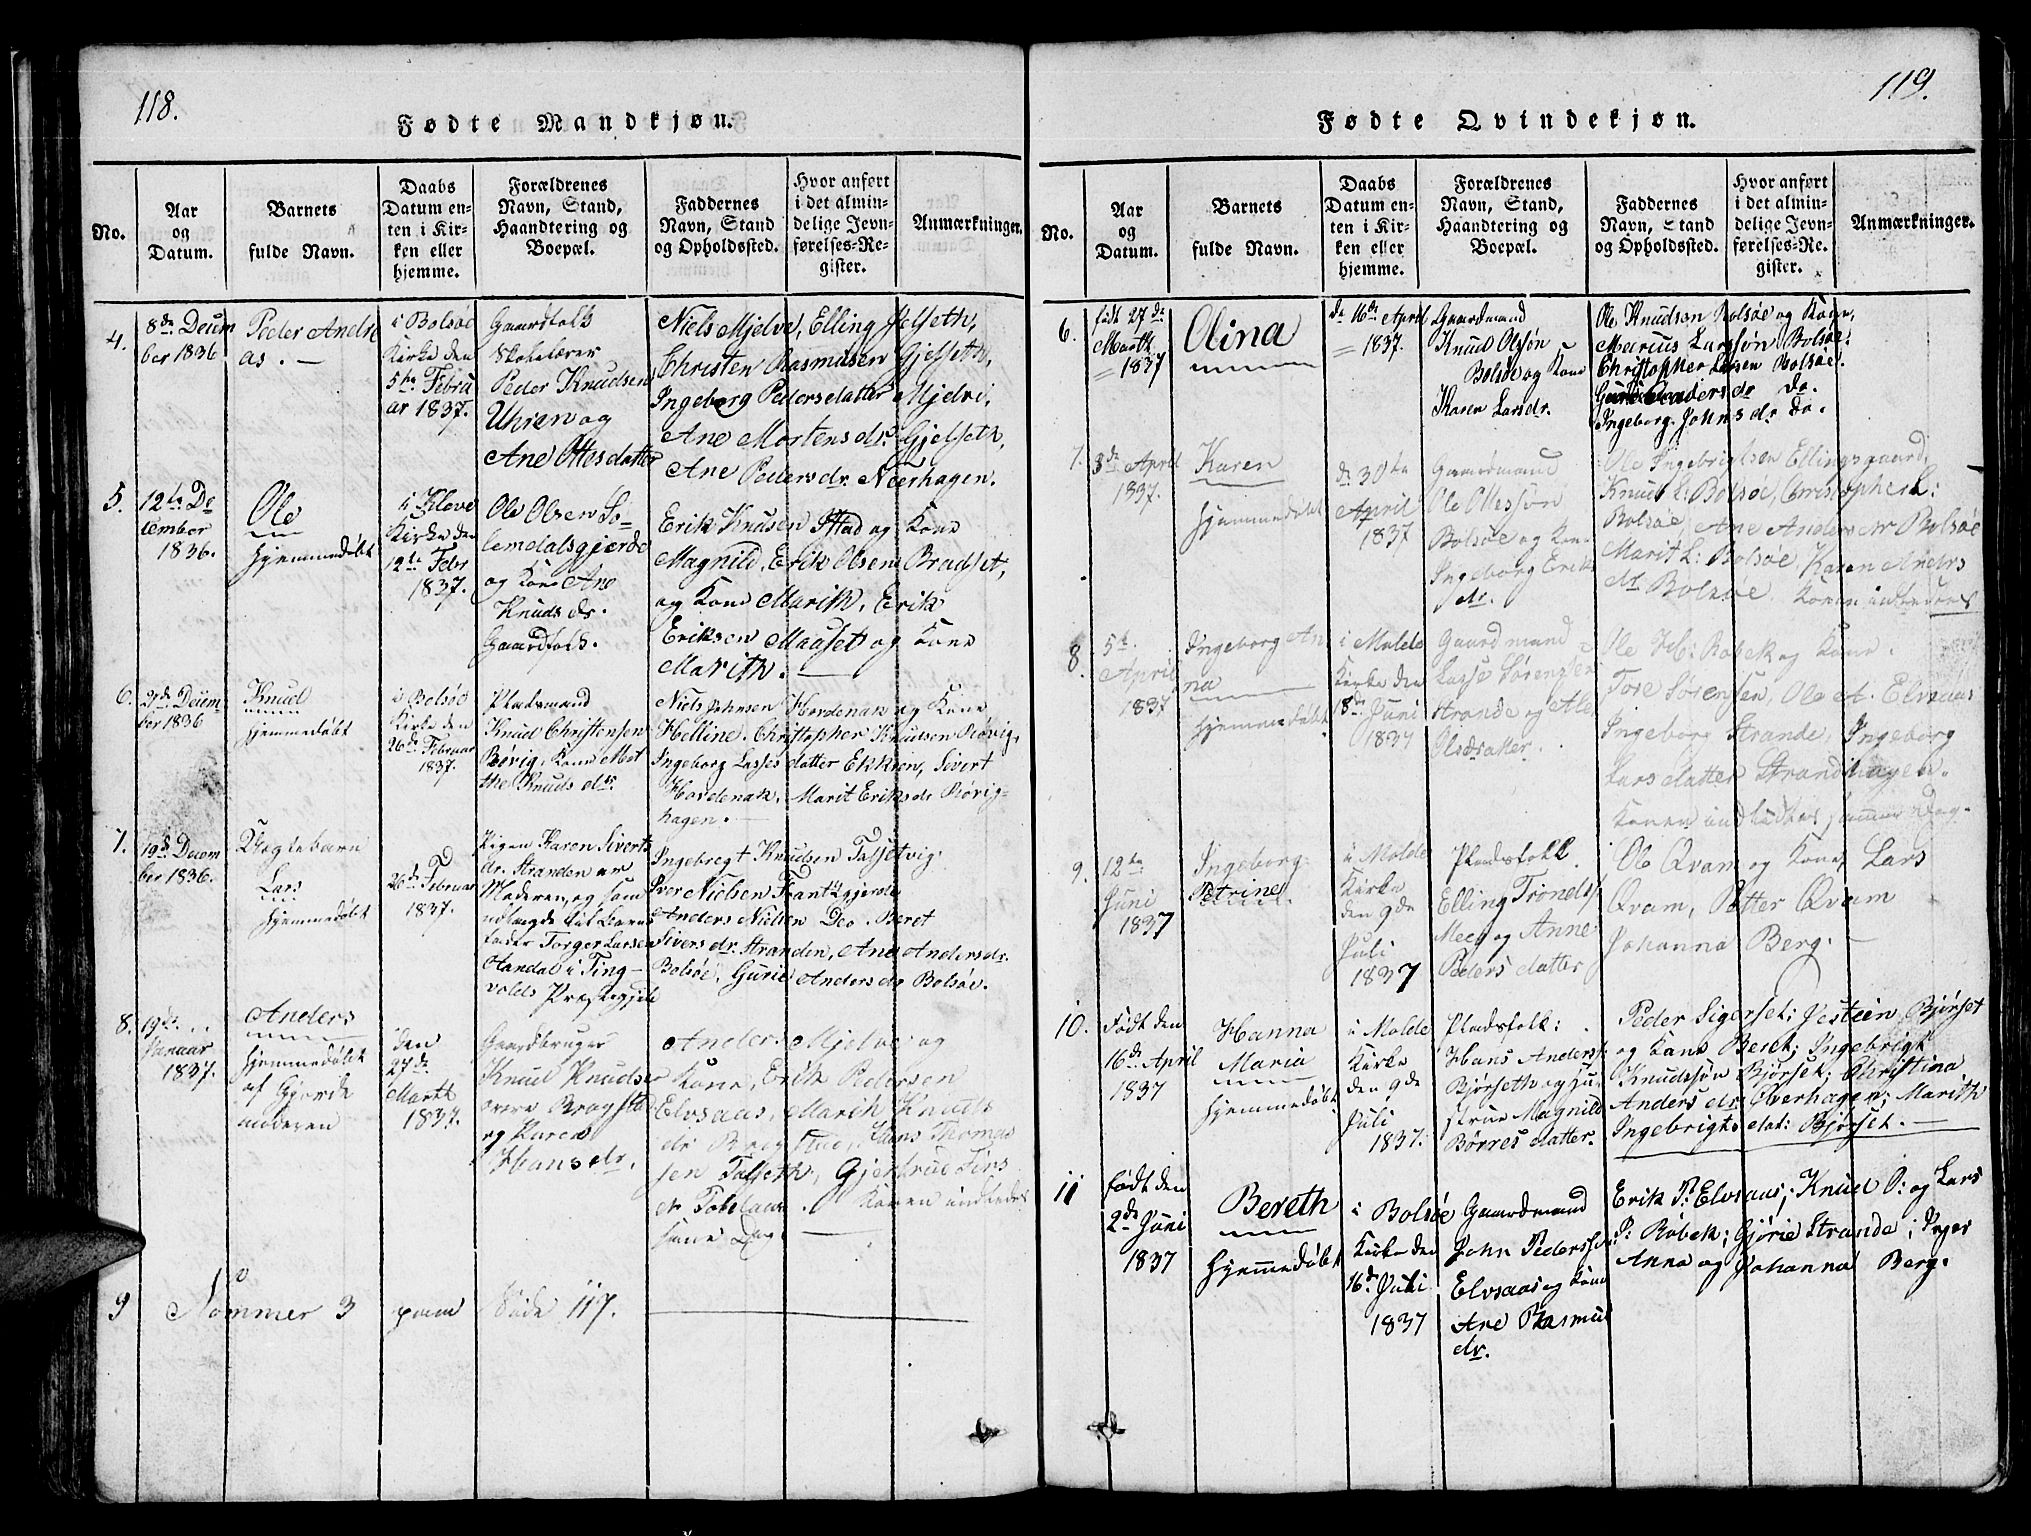 118.
Fødte Mandkjøn.
No.
Aar
og
Datum.
Barnets
fulde Navn.
Daabs
Datum en-
ten i Kir-
ken eller
hjemme.
Forældrenes
Navn, Stand,
Haandtering og
Boepæl.
Faddernes
Navn, Stand
og Opholdssted.
Hvor anført
i det almin-
delige Jevn-
førelses-Re-
gister.
Anmærkninger.
4.
8de Decem
ber 1836
Peder Andre
as. —
i Bolsøe
Kirke den
5te Febru
ar 1837.
Gaardfolk
Skolelærer
Peder Knudsen
Uhren og
Ane Ottesdatter
Niels Mjelve, Elling Jelseth,
Christen Rasmusen Gjelseth,
Ingeborg Pedersdatter Mjelvi,
Ane Mortens dr. Gjelseth,
Ane Peders dr. Neerhagen.
5.
12te De
cember
1836.
Ole
hjemmedøbt
i Kleve
Kirke den
12te Febr
1837.
Ole Olsen So-
lemdalsgjerde
og Kone Ane
Knuds dr.
Gaardfolk.
Erik Knusen Istad og Kone
Magnild, Erik Olsen Bradset,
og Kone Marith, Erik
Eriksen Mauset og Kone
Marith. —
6.
21de Decem-
ber 1836
Knud
hjemmedøbt
i Bolsøe
Kirke den
26de Februar
1837.
Pladsmand
Knud Christensen
Røvig, Kone Met
the Knuds dr.
Niels Johnsen Hordenak og Kone
Helline. Christopher Knudsen Røvig,
Ingeborg Lasses datter Ekkren, Sivert
Hordenak, Marit Eriks dr Røvig-
hagen. —
7.
19de Decem
ber 1836.
Uægte barn
Lars
hjemmedøbt
26de Februar
1837.
Pigen Karen Siverts
dr. Stranden er
Moderen, og som
udlagde til Barns
fader Torger Larsen
Aandal i Ting-
volds Præstegjeld
Ingebregt Knudsen Talsetvig
Iver Nielsen Frantzgjerde
Anders Nielsen Do. Beret
Sivers dr. Stranden, Ane Anders dr.
Bolsøe, Gurie Anders dr Bolsøe.
8.
19de
Januar
1837.
Anders
hjemmedøbt
af Gjorde
moderen
Den
27de
Martz
1837.
Gaardbruger
Knud Knudsen
øvre Bragstad
og Karen
Hans dr.
Anders Mjelve og
Kone, Erik Pedersen
Elvsaas, Marith Knuds
dr Bragstad, Hans Thomas
sen Talseth, Gjertrue Fins
dr Tokelaas. Konen indledes
samme Dag. —
9
Nommer 3
paa
Side 117.
119.
Fødte Qvindekjøn.
No.
Aar
og
Datum.
Barnets
fulde Navn.
Daabs
Datum en-
ten i Kir-
ken eller
hjemme.
Forældrenes
Navn, Stand,
Haandtering og
Boepæl.
Faddernes
Navn, Stand
og Opholdssted.
Hvor anført
i det almin-
delige Jevn-
førelses-Re-
gister.
Anmærkninger.
6.
født 27de
Martz
1837
Olina
de 16de April
1837.
Gaardmand
Knud Olsøn
Bolsøe og Kone
Karen Lars dr.
Ole Knudsen Bolsøe og Kone,
Marius Larssøn Bolsøe.
Christopher Larsen Bolsøe.
Gurie Anders dr Do.
Ingeborg Johns dr Do.
7.
3de April
1837.
Karen
hjemmedøbt
d. 30te
April
1837
Gaardmand
Ole Olessøn
Bolsøe og Kone
Ingeborg Erik
dr.
Ole Ingebrigtsen Ellingsgaard,
Knud L: Bolsøe, Christopher L:
Bolsøe, Ane Anders dr Bolsøe
Marit L: Bolsøe, Karen Anders
dr Bolsøe. Konen indledes
8.
5te
April
1837
Ingeborg An
na
hjemmedøbt
i Molde
Kirke den
18de Juni
1837
Gaardmand
Lasse Sørensen
Strande og Ale
Olsdatter.
Ole H: Røbek og Kone.
Tore Sørensen, Ole A. Elvsaas
Ingeborg Strande, Ingeborg
Lars datter Strandhagen.
Konen indledes samme Dag.
9.
12te
Juni
1837
Ingeborg
Petrine
i Molde
Kirke
den 9de
Juli
1837
Pladsfolk.
Elling Trondss
Meeg og Anne
Peders datter
Ole Qvam og Kone, Lars
Qvam, Petter Qvam
Johanna Berg. —
10.
Født den
16de April
1837
Hanna
Maria
hjemmedøbt
i Molde
Kirke
den 9de
Juli
1837.
Pladsfolk:
Hans Anderss:
Bjørseth og Hu-
strue Magnild
Børres datter.
Peder Sigerset; Jesteen Bjørset
og Kone Beret; Ingebrigt
Knudssøn Bjørset; Christina
Anders dr. Øverhagen; Marith
Ingebrigts dat: Bjørset. —
11
født den
2de Juni
1837
Bereth
hjemmedøbt
i Bolsøe
Kirke den
16de Juli
1837
Gaardmand
John Pederssen
Elvsaas og Kone
Ane Rasmus
dr.
Erik P. Elvsaas; Knud O: og Lars
P: Røbek; Gjørie Strande; Inger
Anna og Johanna Berg.